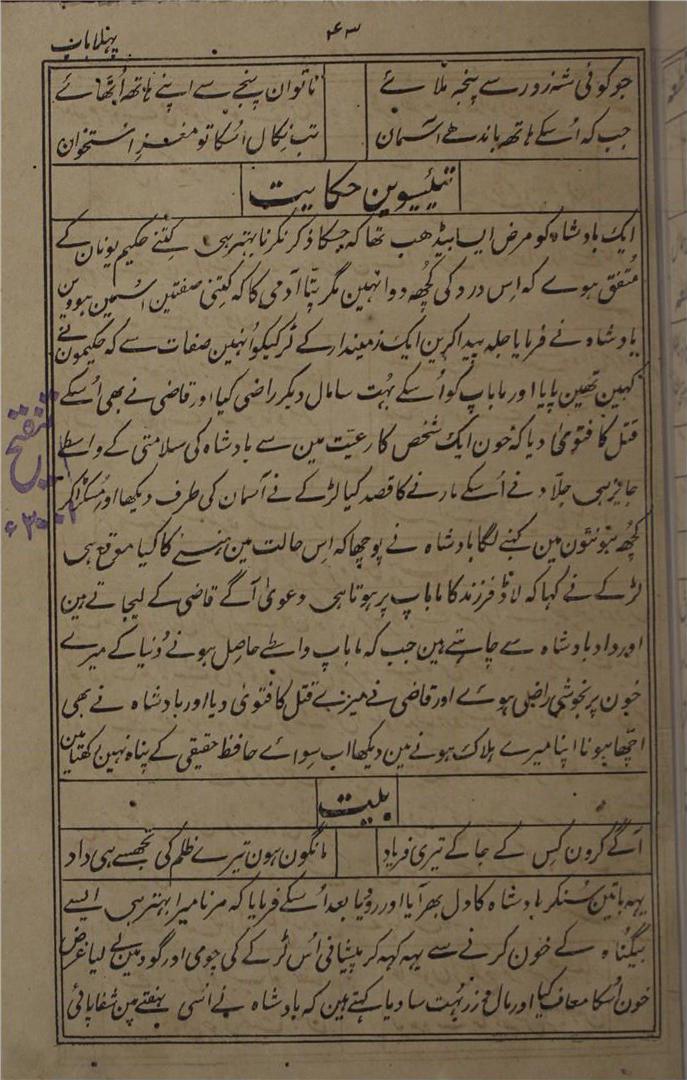 ۴۳
پہلا باب
جو کوئی شہ زور سے پنجہ ملائے ناتوان پنجے سے اپنے ہاتھ اُٹھائے
جب کہ اُسکے ہاتھ باندھے آسمان تب نکال اُسکا تو مغز استخوان
تیئیسوین حکایت
ایک بادشاہ کو مرض ایسا بیڈھب تھا کہ جسکا ذکر نکرنا بہتر ہی کتنے حکیم یونان کے
متفق ہوے کہ اِس درد کی کچھ دوا نہین مگر پتّا آدمی کا کہ کتنی صفتین اسمین ہووین
بادشاہ نے فرمایا جلد پیدا کرین ایک زمیندار کے لڑکیکو اُنہین صفات سے کہ حکیمون نے
کہین تھین پایا اور ما باپ کو اُسکے بہت سا مال دیکر راضی کیا اور قاضی نے بھی اُسکے
قتل کا فتویٰ دیا کہ خون ایک شخص کا رعیّت مین سے بادشاہ کی سلامتی کے واسطے
جایز ہی جلّاد نے اُسکے مارنے کا قصد کیا لڑکے نے آسمان کی طرف دیکھا اور مُسکرا کر
کچھ ہونٹون مین کہنے لگا بادشاہ نے پوچھا کہ اِس حالت مین ہنسنے کا کیا موقع ہی
لڑکے نے کہا کہ لاڈ فرزند کا ما باپ پر ہوتا ہی دعویٰ آگے قاضی کے لیجاتے ہین
اور داد بادشاہ سے چاہتے ہین جب کہ ما باپ واسطے حاصل ہونے دُنیا کے میرے
خون پر بخوشی راضی ہوئے اور قاضی نے میرے قتل کا فتویٰ دیا اور بادشاہ نے بھی
اچّھا ہونا اپنا میرے ہلاک ہونے مین دیکھا اب سواے حافظ حقیقی کے پناہ نہین رکھتا مین
بیت
آگے کرون کِس کے جا کے تیری فریاد مانگون ہون تیرے ظلم کی تجھسے ہی داد
یہہ باتین سُنکر بادشاہ کا دل بھر آیا اور رو دیا بعد اُسکے فرمایا کہ مرنا میرا بہتر ہی ایسے
بیگناہ کے خون کرنے سے یہہ کہہ کر پیشانی اُس لڑکے کی چومی اور گود مین لے لیا غرض
خون اُسکا معاف کیا اور مال و زر بہت سا دیا کہتے ہین کہ بادشاہ نے اُسی ہفتے مین شفا پائی
تنقیح